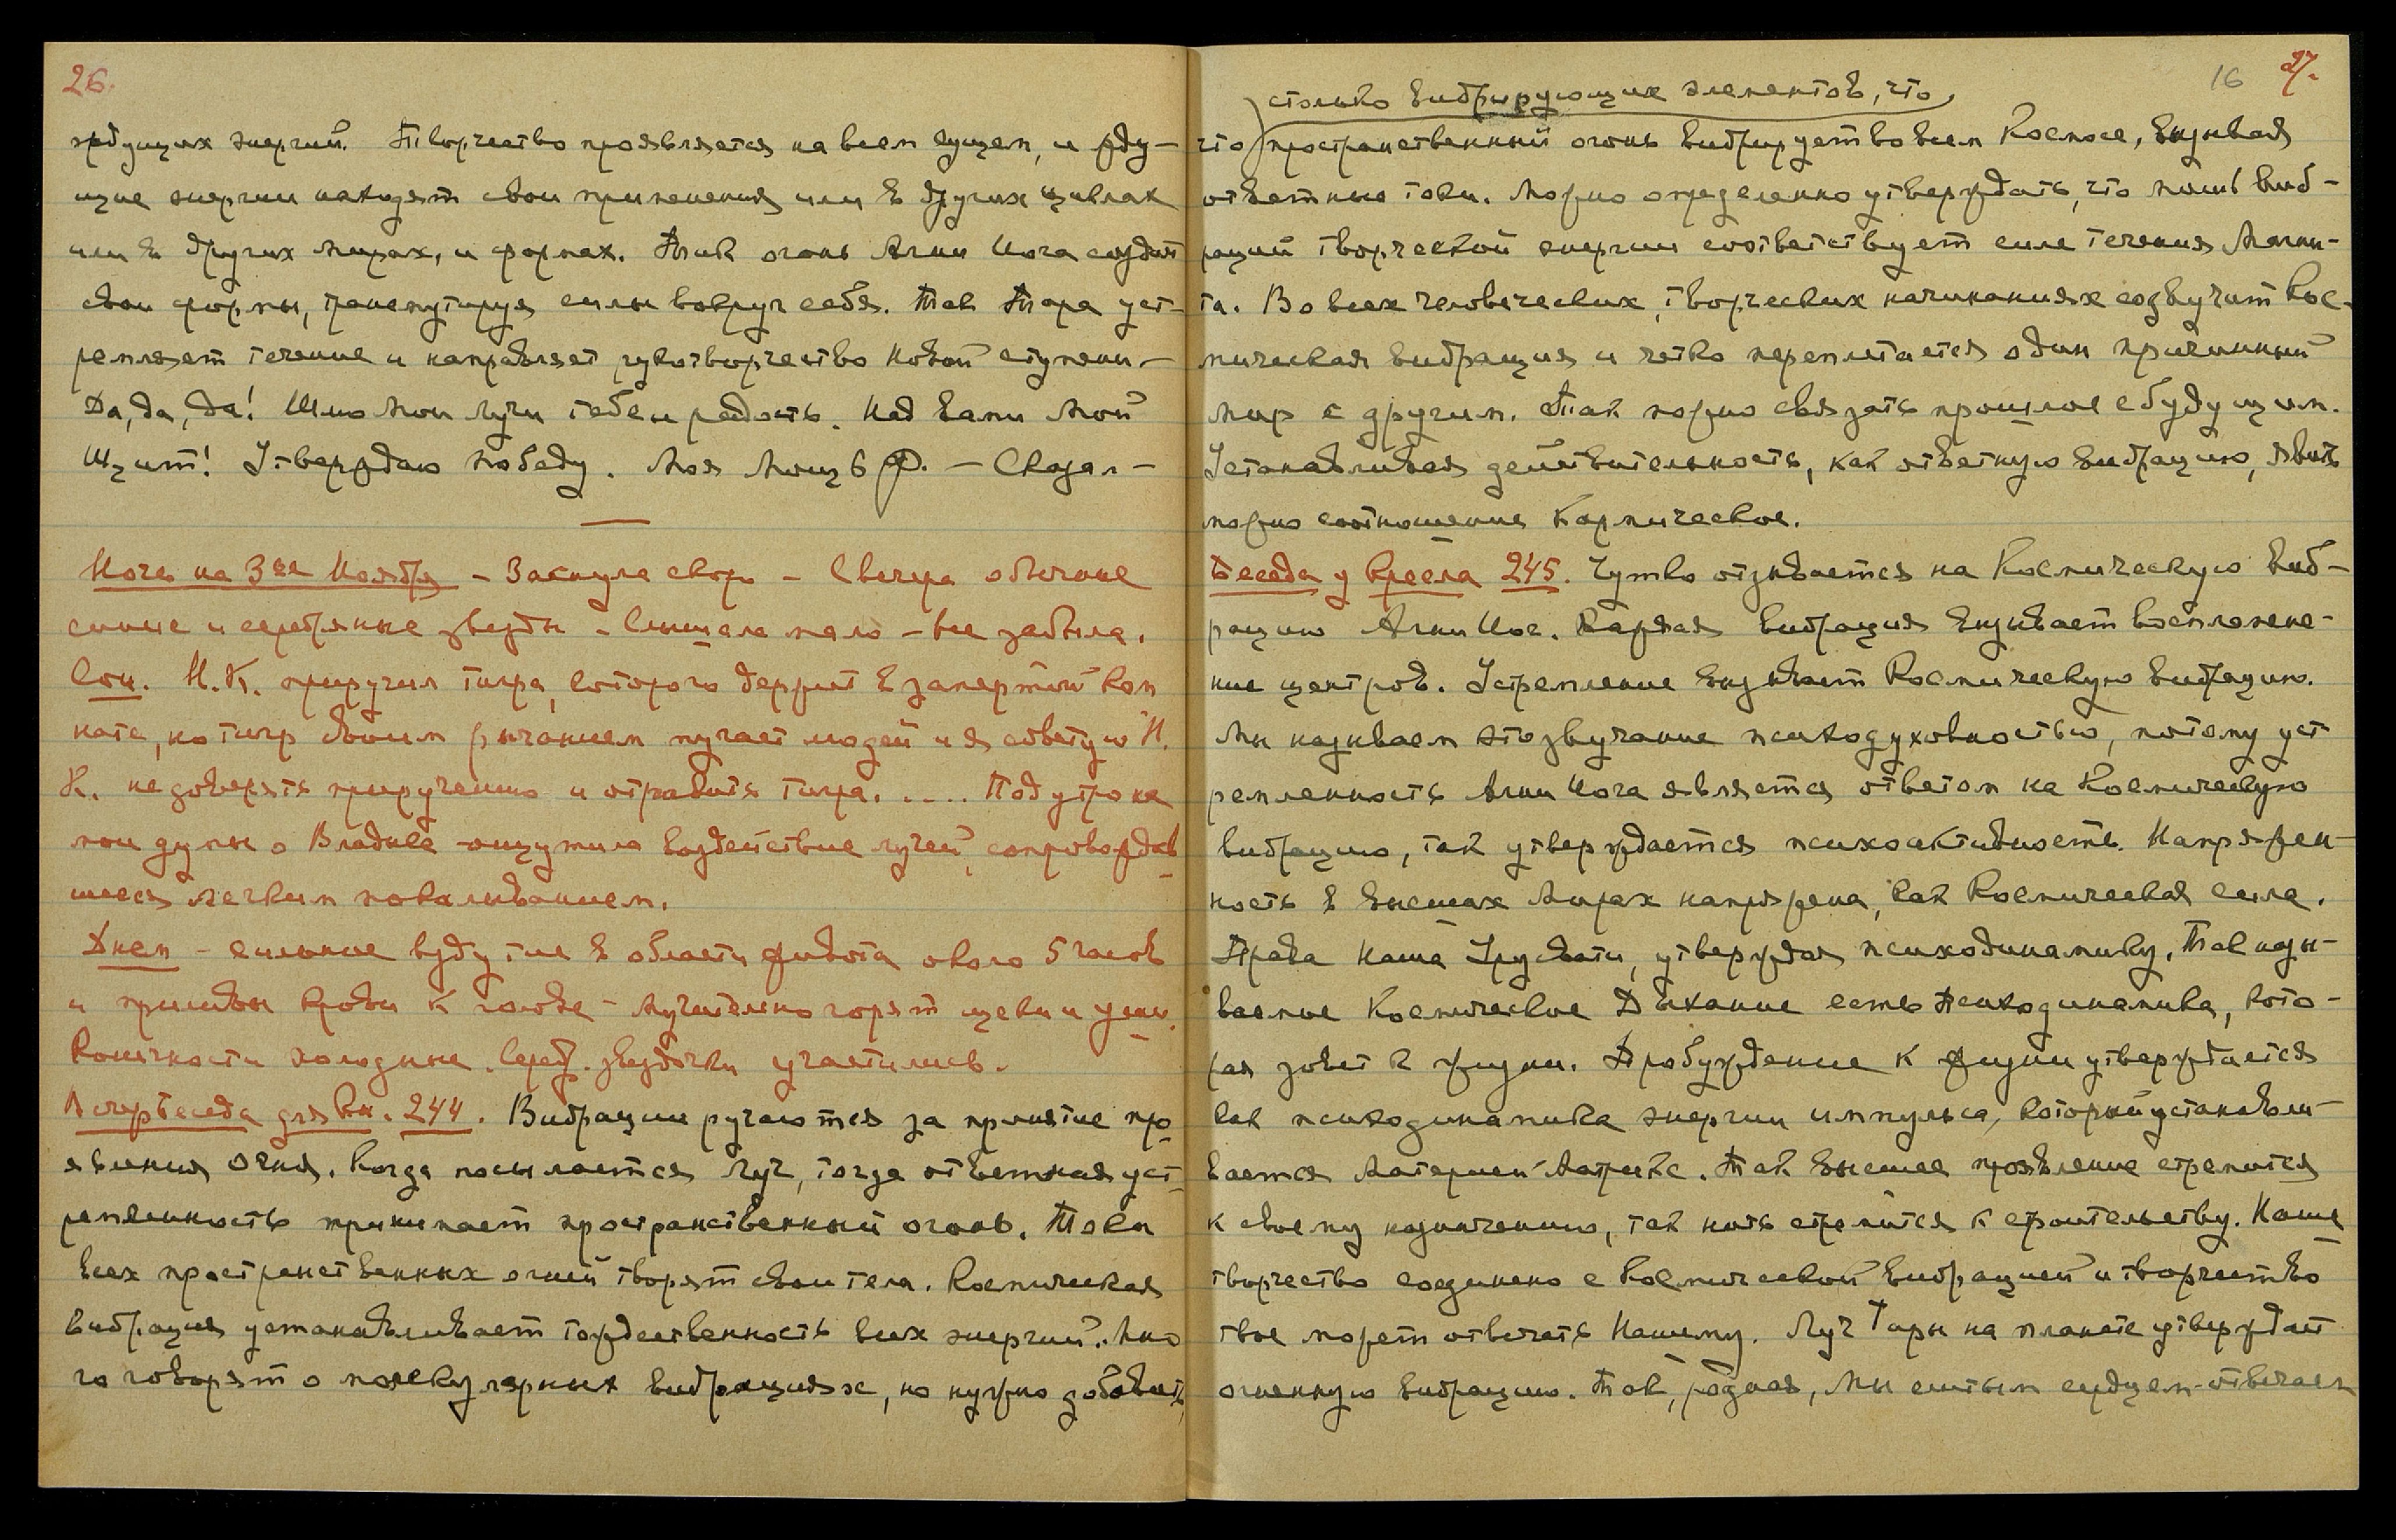 26.
ждущих энергий. Творчество проявляется на всем сущем, и жду-
щие энергии находят свои применения или в других циклах
или в других мирах, и формах. Так огонь Агни Йога создает
свои формы, трансмутируя силы вокруг себя. Так Тара уст-
ремляет течение и направляет рукотворчество Новой ступени. —
Да, да, да! Шлю Мои Лучи тебе и радость. Над вами Мой
Щит! Утверждаю победу. Моя Мощь Ф. — Сказал —
Ночь на 3ье Ноября — Заснула скоро — С вечера обычные
синие и серебряные звезды — Слышала мало — все забыла.
Сон. Н.К. приручил тигра, которого держит в запертой ком
нате, но тигр своим рычанием пугает людей и я советую Н.
К. не доверять приручению и отравить тигра. .... Под утро на
мои думы о Владыке — ощутила воздействие лучей, сопровождав
шееся легким покалыванием.
Днем — сильное вздутие в области живота около 5 часов
и приливы крови к голове — Мучительно горят щеки и уши.
Конечности холодные. Сереб. звездочки участились.
Вечер Беседа для Вн. 244. Вибрации ручаются за принятие про
явления Огня. Когда посылается Луч, тогда ответная уст-
ремленность принимает пространственный огонь. Токи
всех пространственных огней творят свои тела. Космическая
вибрация устанавливает тождественность всех энергий. Мно
го говорят о молекулярных вибрациях, но нужно добавить,
16 27.
столько вибрирующих элементов, что
что пространственный огонь вибрирует во всем Космосе, вызывая
ответные токи. Можно определенно утверждать, что мощь виб-
раций творческой энергии соответствует силе течения Магни-
та. Во всех человеческих, творческих начинаниях созвучит Кос-
мическая вибрация и четко переплетается один причинный
мир с другим. Так можно связать прошлое с будущим.
Устанавливая действительность, как ответную вибрацию, явить
можно соотношение Кармическое.
Беседа у Кресла 245. Чутко отзывается на Космическую виб-
рацию Агни Йог. Каждая вибрация вызывает воспламене-
ние центров. Устремление вызывает Космическую вибрацию.
Мы называем это звучание психодуховностью, потому уст
ремленность Агни Йога является ответом на Космическую
вибрацию, так утверждается психоактивность. Напряжен-
ность в высших Мирах напряжена, как Космическая сила.
Права Наша Урусвати, утверждая психодинамику. Так назы-
ваемое Космическое Дыхание есть Психодинамика, кото-
рая зовет к жизни. Пробуждение к жизни утверждается
как психодинамика энергии импульса, который устанавли-
вается Материей Матрикс. Так высшее проявление стремится
к своему назначению, так нить стремится к строительству. Наше
творчество соединено с Космической вибрацией и творчество
твое может отвечать Нашему. Луч Тары на планете утверждает
огненную вибрацию. Так, родная, Мы слитым сердцем отвечаем